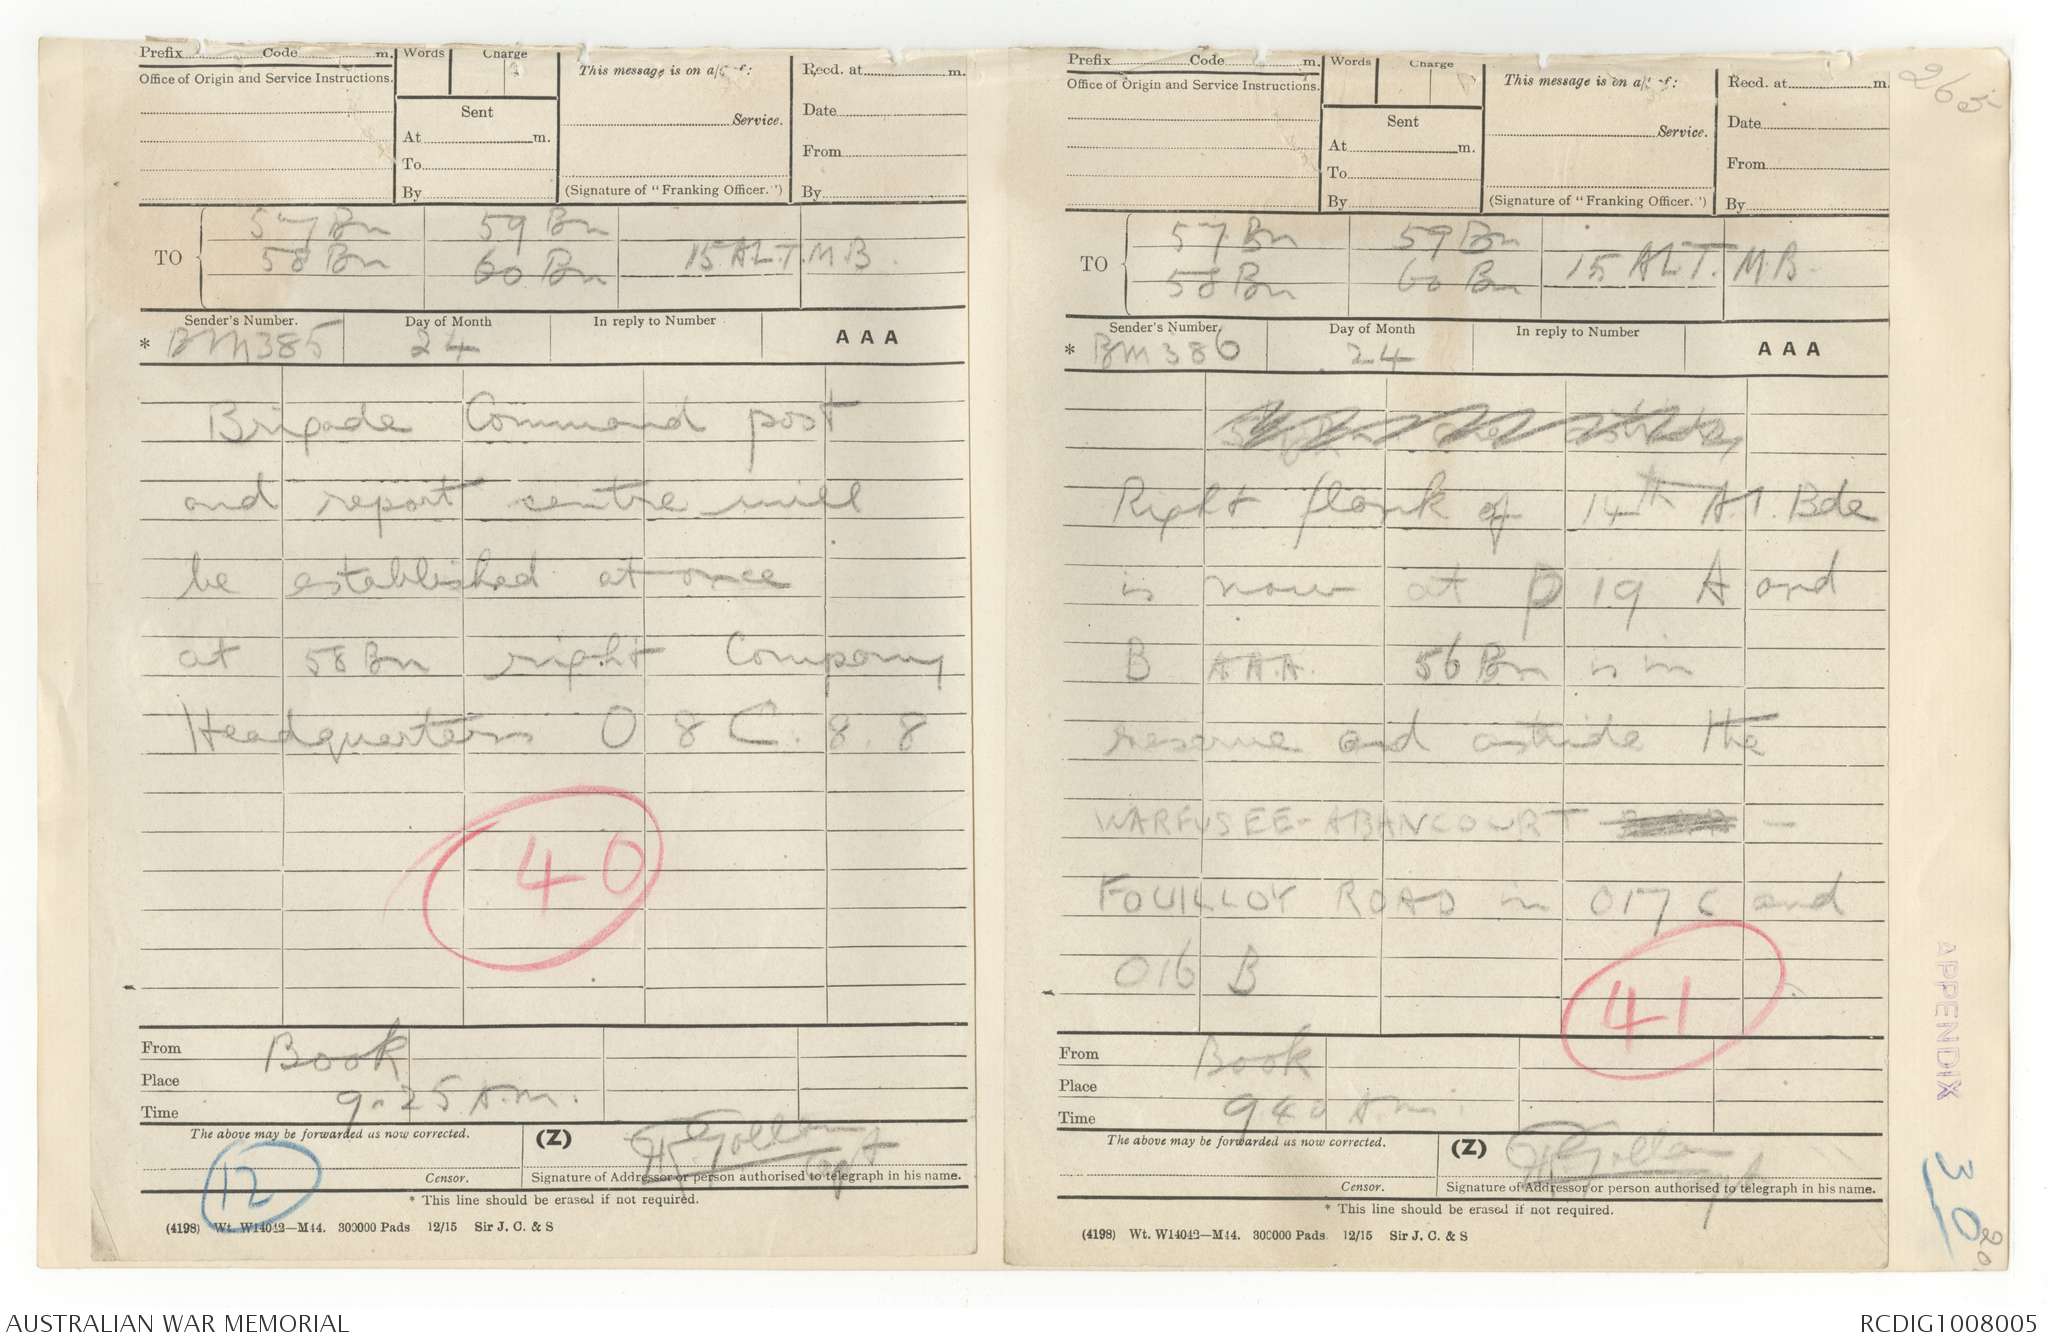 Prefix Code m.
Words Charge
This message is on a/c of:
Recd. at m.
Office of Origin and Service Instructions.
Sent
Service.
Date
At m.
From
To
By
(Signature of "Franking Officer.")
By
TO
57 Bn 59 Bn
58 Bn 60 Bn 15 A.L.T.M.B.
Sender's Number. Day of Month In reply to Number AAA
* BM385 24
Brigade Command post
and report centre will
be established at once
at 58 Bn right Company
Headquarters O 8 C. 8. 8
40
From Book
Place
Time 9.25 A.m.
The above may be forwarded as now corrected. (Z)
Gollan Capt
Censor. Signature of Addressor or person authorised to telegraph in his name.
* This line should be erased if not required.
12
(4198) Wt. W14042—M44. 300000 Pads 12/15 Sir J. C. & S
Prefix Code m.
Words Charge
This message is on a/c of:
Recd. at m.
Office of Origin and Service Instructions.
Sent
Service.
Date
At m.
From
To
By
(Signature of "Franking Officer.")
By
TO
57 Bn 59 Bn
58 Bn 60 Bn 15 A.L.T. M.B.
Sender's Number. Day of Month In reply to Number AAA
* BM386 24
Right flank of 14th A.I. Bde
is now at P 19 A and
B A.A.A. 56 Bn is in
reserve and astride the
WARFUSEE-ABANCOURT —
FOUILLOY ROAD in O17 C and
O16 B
41
From Book
Place
Time 9.40 A.m.
The above may be forwarded as now corrected. (Z)
Gollan Capt
Censor. Signature of Addressor or person authorised to telegraph in his name.
* This line should be erased if not required.
(4198) Wt. W14042—M44. 300000 Pads 12/15 Sir J. C. & S
265
APPENDIX
30
AUSTRALIAN WAR MEMORIAL
RCDIG1008005